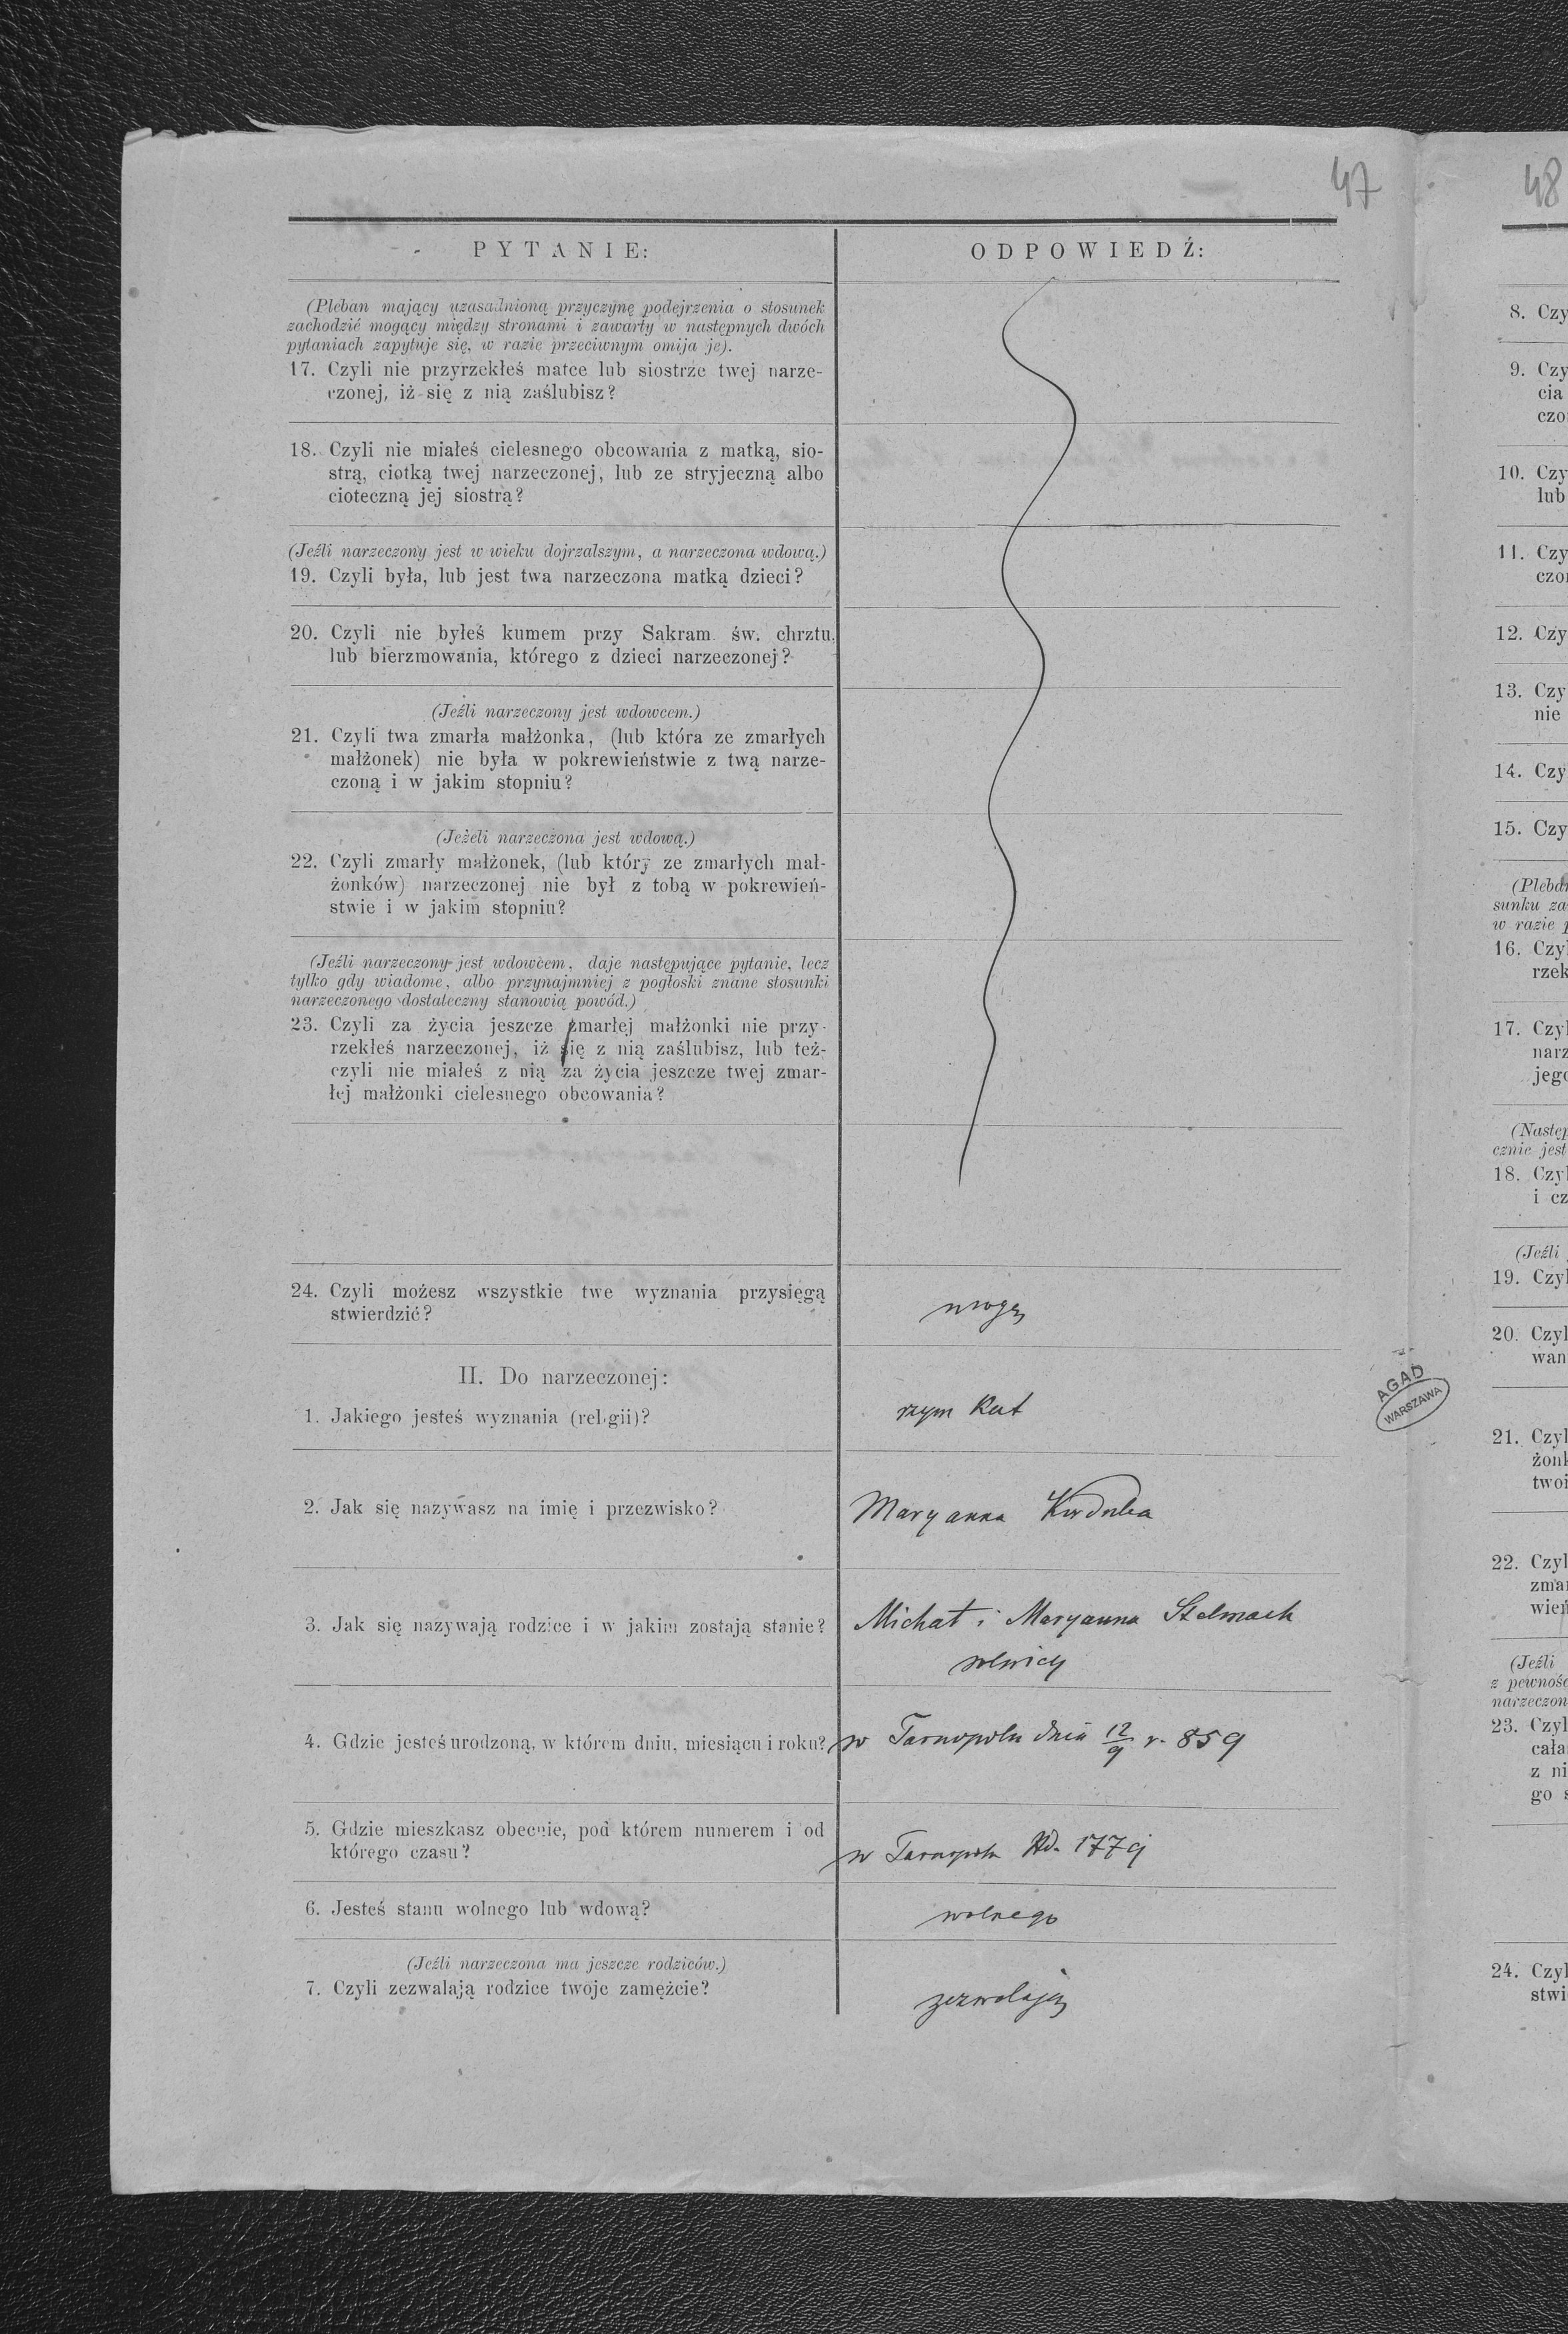 47
48
PYTANIE:
ODPOWIEDŹ:
(Pleban mający uzasadnioną przyczynę podejrzenia o stosunek
zachodzić mogący między stronami i zawarty w następnych dwóch
pytaniach zapytuje się, w razie przeciwnym omija je).
17. Czyli nie przyrzekłeś matce lub siostrze twej narze-
czonej, iż się z nią zaślubisz?
18. Czyli nie miałeś cielesnego obcowania z matką, sio-
strą, ciotką twej narzeczonej, lub ze stryjeczną albo
cioteczną jej siostrą?
(Jeźli narzeczony jest w wieku dojrzalszym, a narzeczona wdową.)
19. Czyli była, lub jest twa narzeczona matką dzieci?
20. Czyli nie byłeś kumem przy Sakram. św. chrztu.
lub bierzmowania, którego z dzieci narzeczonej?
(Jeźli narzeczony jest wdowcem.)
21. Czyli twa zmarła małżonka, (lub która ze zmarłych
małżonek) nie była w pokrewieństwie z twą narze-
czoną i w jakim stopniu?
(Jeżeli narzeczona jest wdową.)
22. Czyli zmarły małżonek, (lub który ze zmarłych mał-
żonków) narzeczonej nie był z tobą w pokrewień-
stwie i w jakim stopniu?
(Jeźli narzeczony jest wdowcem, daje następujące pytanie, lecz
tylko gdy wiadome, albo przynajmniej z pogłoski znane stosunki
narzeczonego dostateczny stanowią powód.)
23. Czyli za życia jeszcze zmarłej małżonki nie przy-
rzekłeś narzeczonej, iż się z nią zaślubisz, lub też
czyli nie miałeś z nią za życia jeszcze twej zmar-
łej małżonki cielesnego obcowania?
24. Czyli możesz wszystkie twe wyznania przysięgą
stwierdzić?
mogę
II. Do narzeczonej:
1. Jakiego jesteś wyznania (religii)?
rzym Kat
2. Jak się nazywasz na imię i przezwisko?
Maryanna
3. Jak się nazywają rodzice i w jakim zostają stanie?
Michał i Maryanna Stelmach
rolnicy
4. Gdzie jesteś urodzoną, w którem dniu, miesiącu i roku?
w Tarnopolu dnia 12/9 r. 859
5. Gdzie mieszkasz obecnie, pod którem numerem i od
którego czasu?
w Tarnopolu Nd. 1779
6. Jesteś stanu wolnego lub wdową?
wolnego
(Jeźli narzeczona ma jeszcze rodziców.)
7. Czyli zezwalają rodzice twoje zamęźcie?
zezwalają
AGAD
WARSZAWA
8. Czy
9. Czy
cia
czo
10. Czy
lub
11. Czy
czo
12. Czy
13. Czy
nie
14. Czy
15. Czy
(Pleba
sunku za
w razie
16. Czy
rzek
17. Czyl
narz
jego
(Następ
cznie jest
18. Czyl
i cz
(Jeźli
19. Czyl
20. Czyl
wan
21. Czyl
żonk
twoi
22. Czyl
zmar
wień
(Jeźli
z pewnośc
narzeczon
23. Czyl
cała
z ni
go s
24. Czyl
stwi